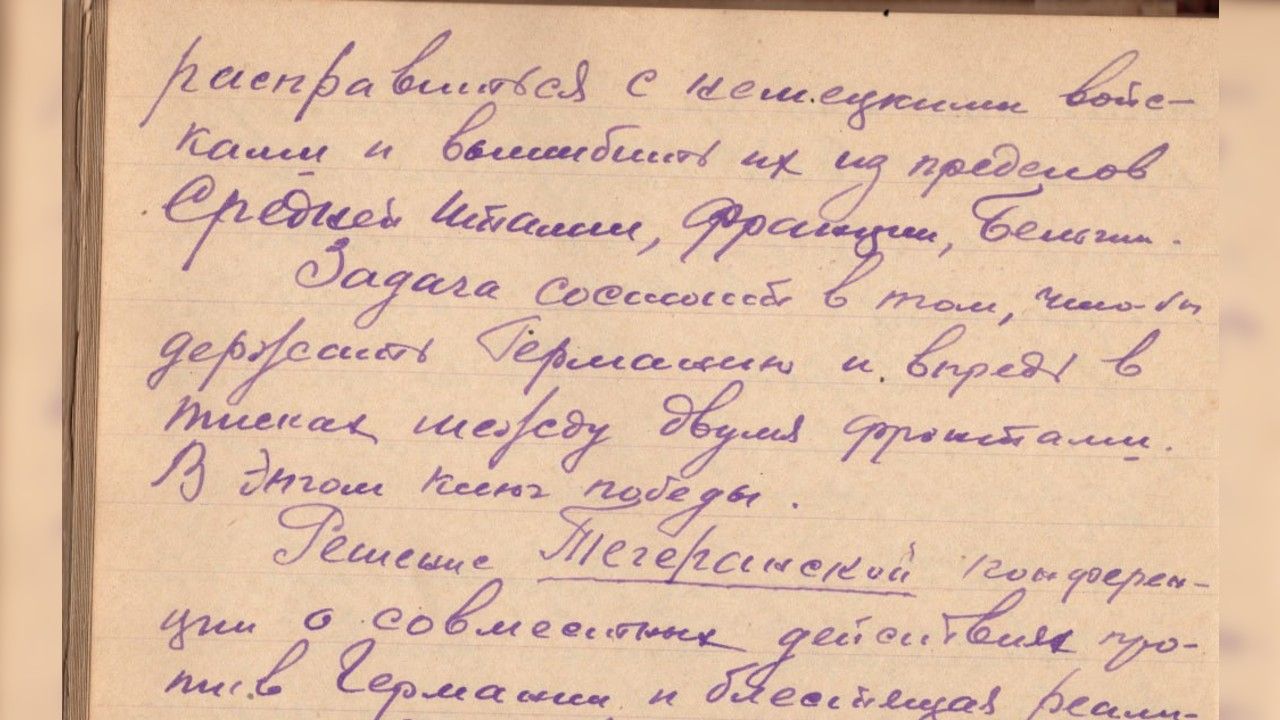 расправиться с немецкими войс-
ками и вышибить их из пределов
Средней Италии, Франции, Бельгии.
Задача состоит в том, что-бы
держать Германию и впредь в
тисках между двумя фронтами.
В этом ключ победы.
Решение Тегеранской конферен-
ции о совместных действиях про-
тив Германии и блестящая реали-